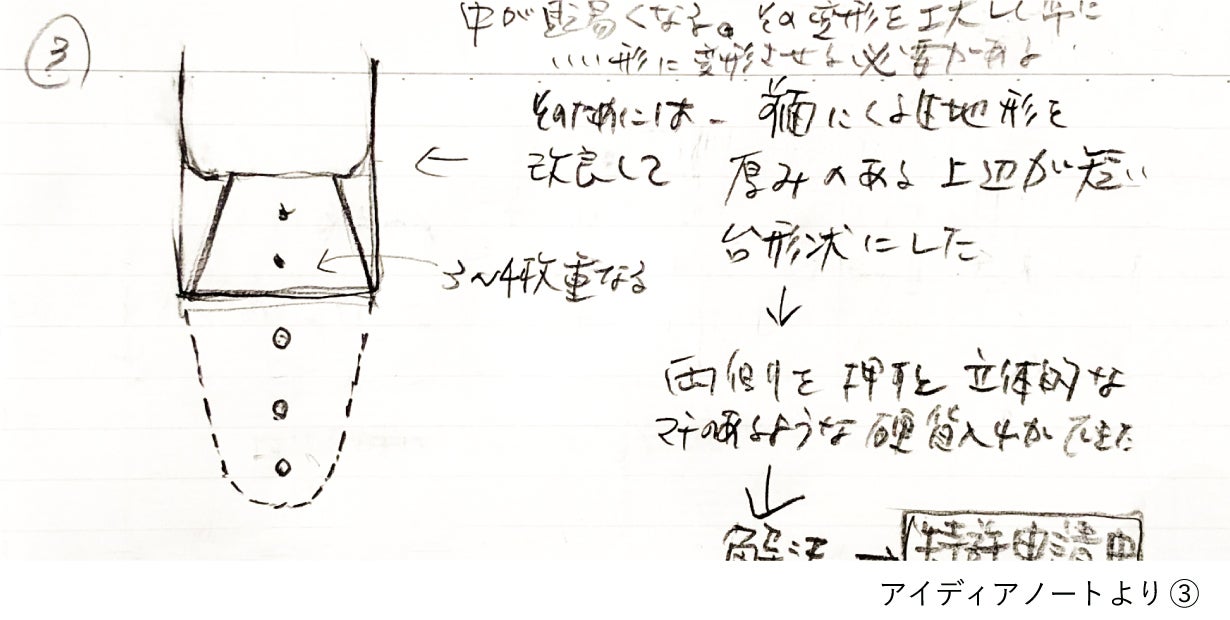 ③
中が見易くなる。その変形を工夫して常に
いい形に変形させる必要がある
そのためには - 要になる生地形を
← 改良して 厚みのある上辺が短い
台形状にした
← 3~4枚重なる
↓
両側を押すと立体的な
マチのあるような硬貨入れができた
↓
解決 → 特許申請中
アイディアノートより③